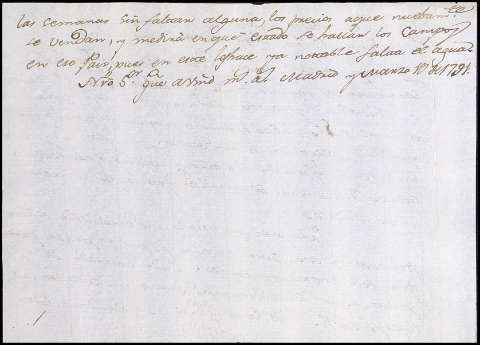 las semanas sin faltar alguna, los precios aque nuebam.te
se vendan, y medirá enqué estado se hallan los Campos
en eso Pais, pues en este sehace ya notable falta el agua.
que a Vmd m.s a.s Madrid y Marzo de 1791.